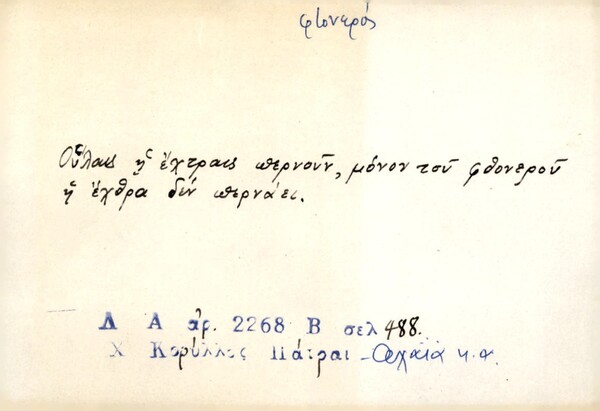 φθονερός
Οὗλαις ᾑ ἔχτραις περνοῦν, μόνον τοῦ φθονεροῦ
ἡ ἔχθρα δέν περνάει.
Λ Α ἀρ. 2268 Β σελ 488.
Χ Κορύλλος Πάτραι - Ἀχαΐα